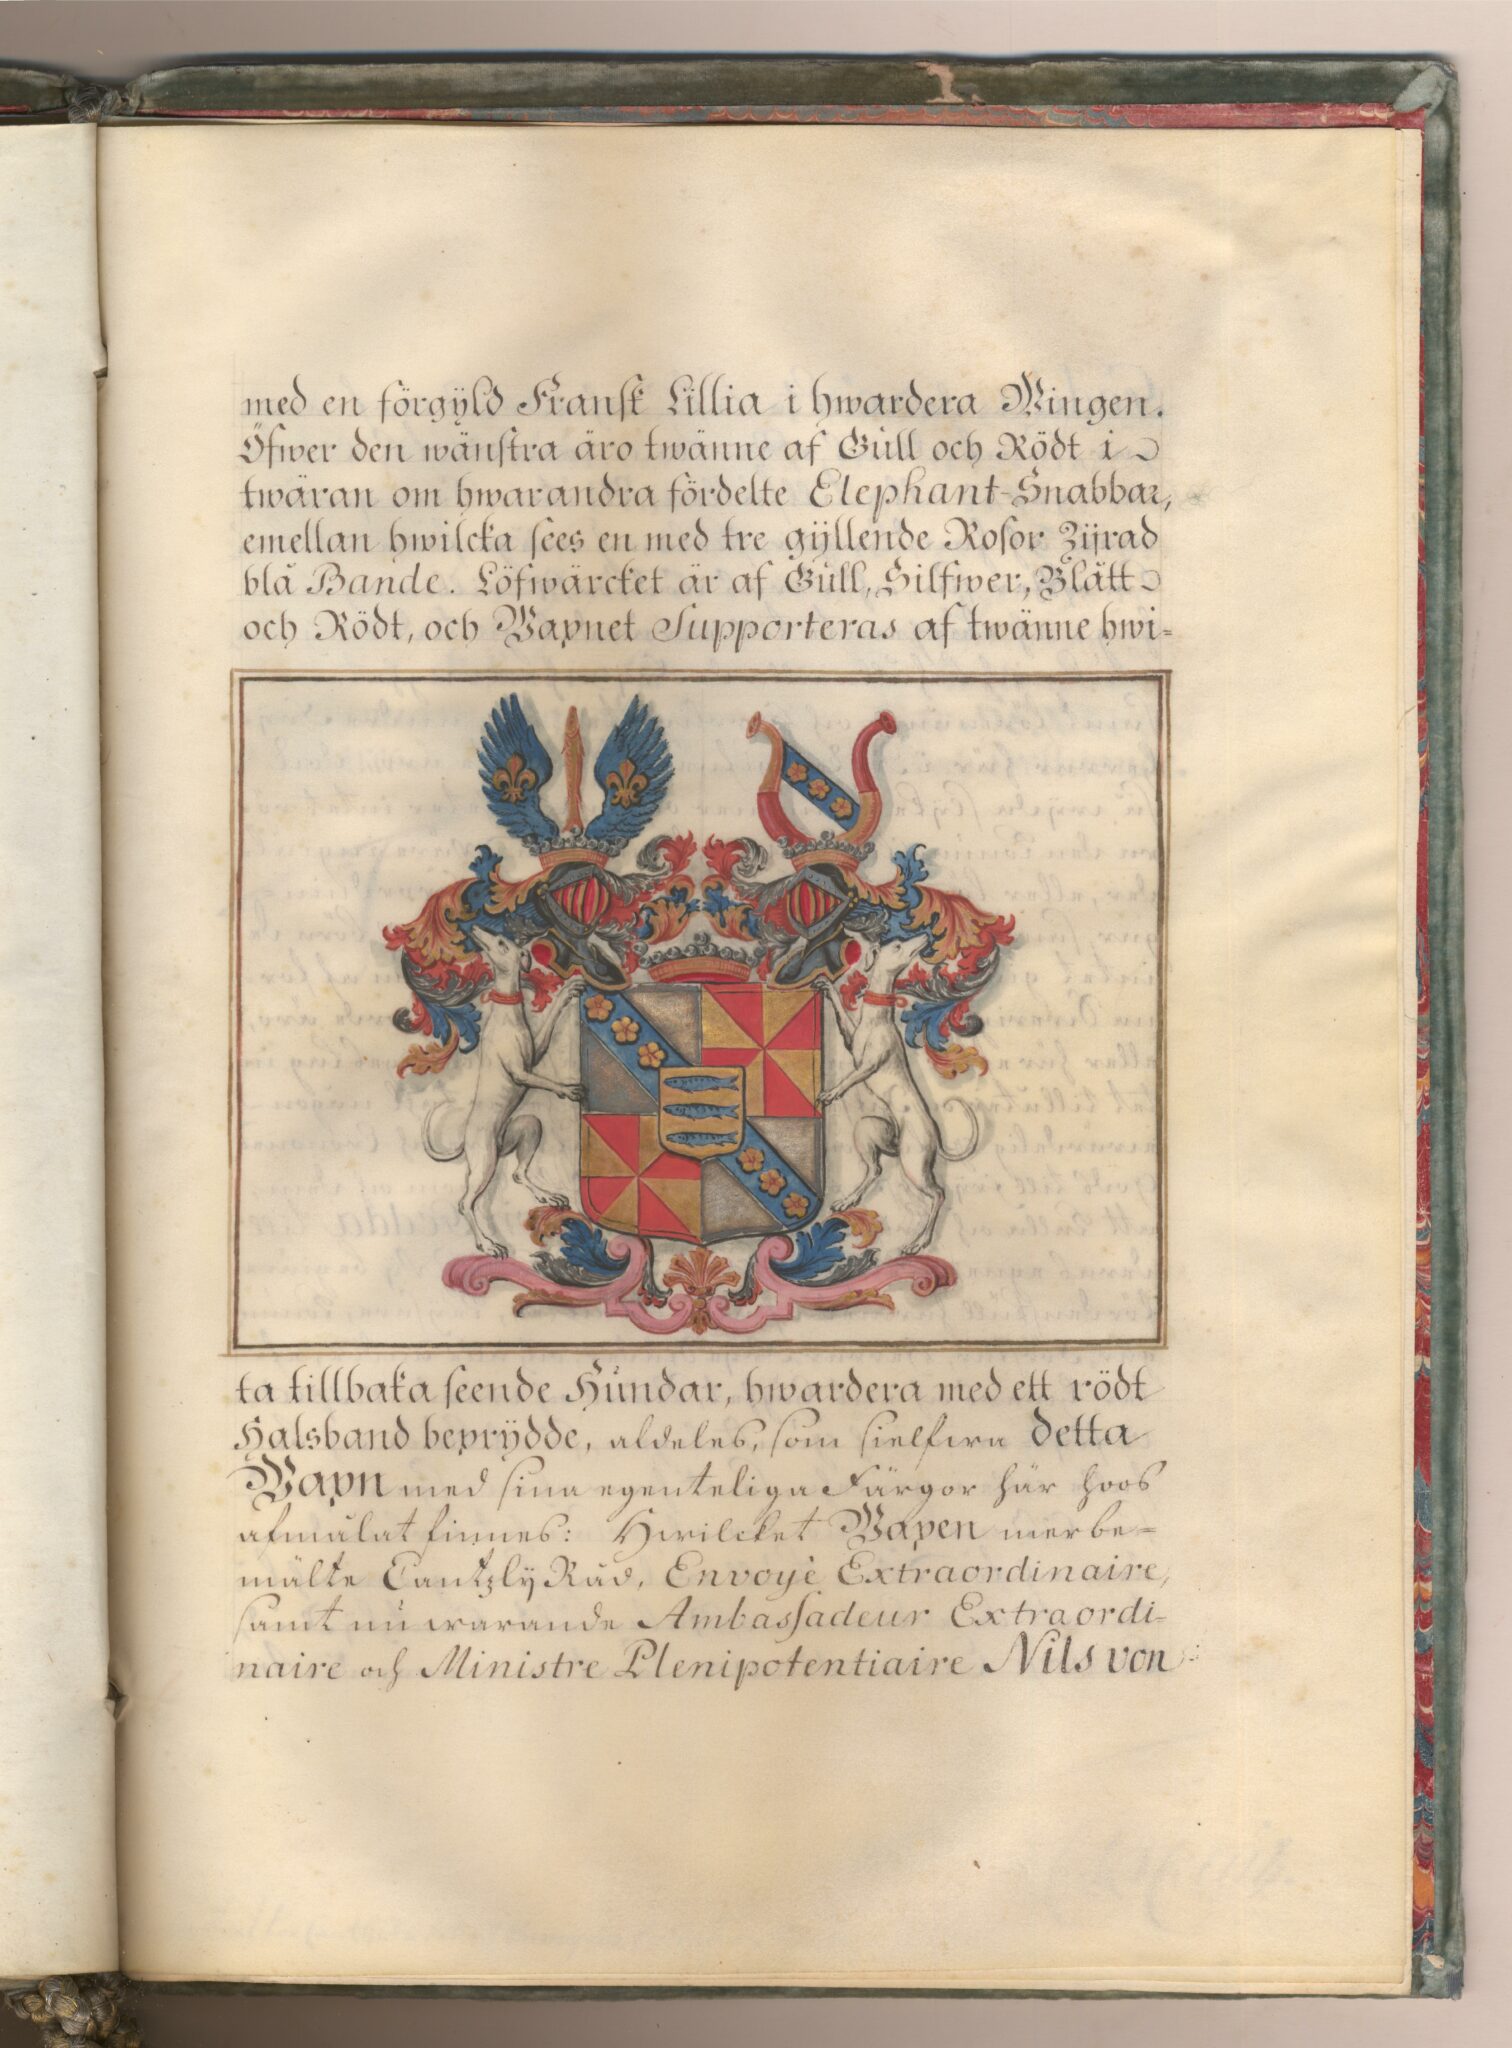 med en förgÿld Fransk Lillia i hwardera Wingen.
Öfwer den wänstra äro twänne af Gull och Rödt i
twäran om hwarandra fördelte Elephant-Snabbar,
emellan hwilcka sees en med tre gÿllende Rosor Zijrad
blå Bande. Löfwärcket är af Gull, Silfwer, Blått
och Rödt, och Wapnet Supporteras af twänne hwi-
ta tillbaka seende Hundar, hwardera med ett rödt
Halsband beprÿdde, aldeles, som sielfwa detta
Wapn med sina egenteliga Färgor här hoos
afmålat finnes: Hwilcket Wapen merbe-
mälte CantzlÿRåd, Envoyè Extraordinaire,
samt nu warande Ambassadeur Extraordi-
naire och Ministre Plenipotentiaire Nils von